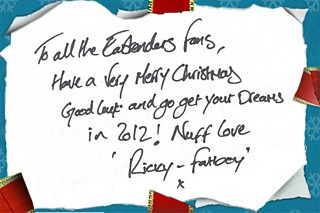 To all the Eastenders fans,
Have a Very Merry Christmas
Good luck and go get your Dreams
in 2012! Nuff Love
"Ricky - Fatboy"
x